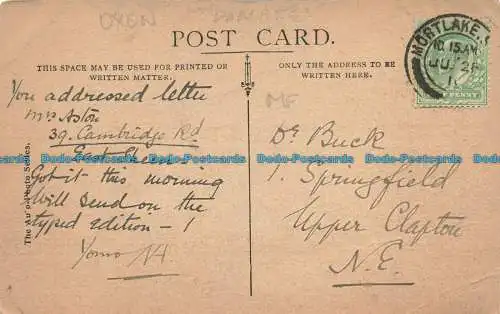 OXEN
POST CARD.
THIS SPACE MAY BE USED FOR PRINTED OR
WRITTEN MATTER.
ONLY THE ADDRESS TO BE
WRITTEN HERE.
MORTLAKE.
10.15 AM
JU 28
1
PENNY
MF
You addressed letter
Mrs Aston
39. Cambridge Rd
East
Got it this morning
Will send on the
typed edition - !
Yours
Dr Buck
1. Springfield
Upper Clapton
N.E.
The Photo Series.
Dodo-Postcards Dodo-Postcards Dodo-Postcards Dodo-Postcards